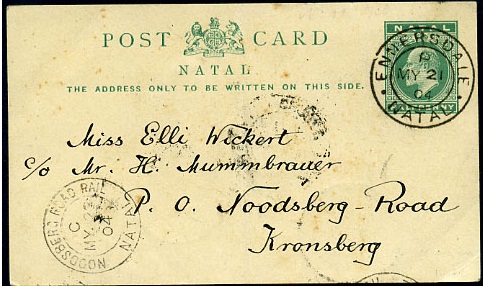 POST CARD
NATAL
THE ADDRESS ONLY TO BE WRITTEN ON THIS SIDE.
NATAL
ENNERSDALE
MY 21
04
NATAL
Miss Elli Wickert
c/o Mr. H. Mummbrauer
P. O. Noodsberg-Road
Kronsberg
NOODSBERG ROAD RAIL
C
MY
04
NATAL